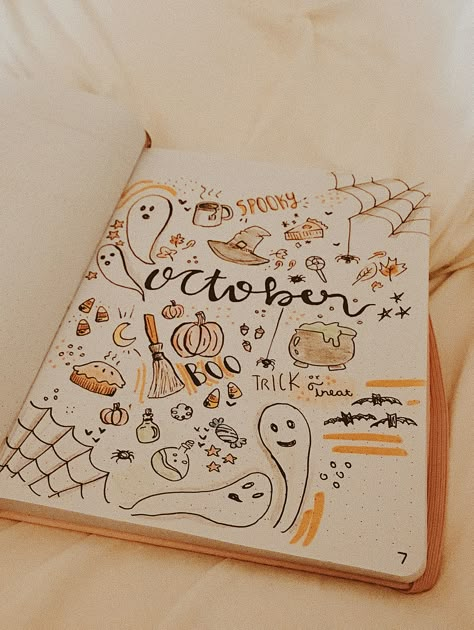 SPOOKY
october
BOO
TRICK or treat
7